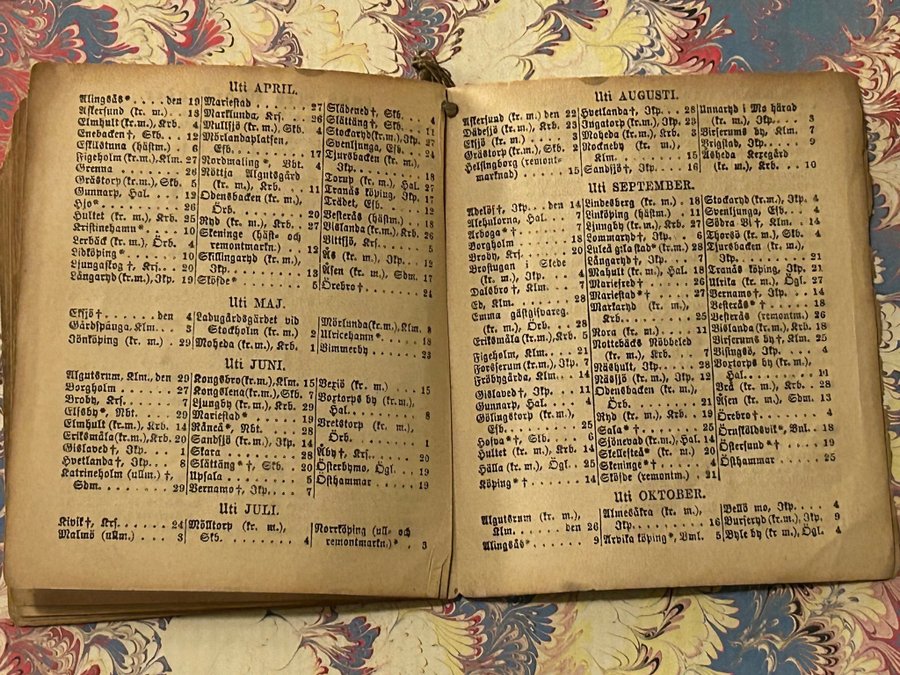 Uti APRIL.
Alingsås* . . . . den 19
Askersund (kr. m.) . 13
Elmhult (kr. m.), Krb. 4
Enebacken†, Skb. . . 12
Eskilstuna (hästm.) . 6
Figeholm (kr.m.), Klm. 27
Grenna . . . . . . 26
Grästorp (kr.m.), Skb. 5
Gunnarp, Hal. . . . 12
Hjo* . . . . . . . 26
Hultet (kr. m.), Krb. 25
Kristinehamn* . . . 10
Lerbäck (kr. m.), Örb. 4
Lidköping* . . . . . 10
Ljungaskog †, Krs. . . 20
Långaryd (kr.m.), Jkp. 19
Mariestad . . . . 27
Marklunda, Krs. . . 26
Mullsjö (kr. m.), Skb. 4
Mörlandaplatsen,
Esb. . . . . . . 17
Nordmaling*, Vbt. 4
Nöttja Algutsgård
(kr. m.), Krb. . . 11
Odensbacken (kr. m.),
Örb. . . . . . . 20
Ryd (kr. m.), Krb. . 27
Skeninge (häst- och
remontmarkn.) . . 12
Skillingaryd (kr. m.),
Jkp. . . . . . . 13
Sköfde* . . . . . 5
Slädened†, Skb. . . 4
Slättäng†, Skb. . . 11
Stockaryd (kr.m.), Jkp. 7
Svenljunga, Esb. . . 24
Tjursbacken (kr. m.),
Jkp. . . . . . . 18
Torup (kr. m.), Hal. 27
Tranås köping, Jkp. 17
Trädet, Esb. . . . 12
Vesterås (hästm.) . . 18
Vislanda (kr. m.), Krb. 26
Vittsjö, Krs. . . . 5
Ås (kr. m.), Jkp. . . 12
Åsen (kr. m.), Sdm. 17
Örebro† . . . . . 24
Uti MAJ.
Eksjö† . . . . den 4
Gårdspånga, Klm. . . 3
Jönköping (kr. m.) . 29
Ladugårdsgärdet vid
Stockholm (kr. m.) 2
Moheda (kr. m.), Krb. 1
Mörlunda (kr.m.), Klm. 8
Ulricehamn* . . . . 18
Vimmerby . . . . . 23
Uti JUNI.
Algutsrum, Klm., den 29
Borgholm . . . . . 27
Broby, Krs. . . . . 7
Elfsby*, Nbt. . . . 29
Elmhult (kr. m.), Krb. 14
Eriksmåla (kr.m.), Krb. 20
Gislaved†, Jkp. . . . 1
Hvetlanda †, Jkp. . . 8
Katrineholm (ullm.) †,
Sdm. . . . . . . 29
Kongsbro (kr.m.), Klm. 15
Kongslena (kr.m.), Skb. 7
Ljungby (kr. m.), Krb. 29
Mariestad* . . . . 19
Råneå*, Nbt. . . . 28
Sandsjö (kr. m.), Jkp. 14
Skara . . . . . . 28
Slättäng* †, Skb. . 20
Upsala . . . . . . 5
Vernamo †, Jkp. . . 7
Verjö (kr. m.) . . 15
Voxtorps by (kr. m.),
Hal. . . . . . . 8
Vretstorp (kr. m.),
Örb. . . . . . . 1
Åby†, Krs. . . . . 20
Österbymo, Ögl. . . 19
Östhammar . . . . 19
Uti JULI.
Kivik†, Krs. . . . . 24
Malmö (ullm.) . . . 3
Mölltorp (kr. m.),
Skb. . . . . . . 4
Norrköping (ull- och
remontmarkn.)* . . 3
Uti AUGUSTI.
Askersund (kr. m.) den 22
Dädesjö (kr. m.), Krb. 23
Eksjö (kr. m.) . . . 8
Grästorp (kr. m.), Skb. 2
Helsingborg (remont-
marknad) . . . . 15
Hvetlanda†, Jkp. . . 28
Ingatorp (kr. m.), Jkp. 23
Moheda (kr. m.), Krb. 3
Rockneby (kr. m.),
Klm. . . . . . . 15
Sandsjö†, Jkp. . . . 16
Unnaryd i Mo härad
(kr. m.), Jkp. . . 3
Virserums by, Klm. . 7
Vrigstad, Jkp. . . . 9
Asheda Kexegård
(kr. m.), Krb. . . 10
Uti SEPTEMBER.
Adelöf†, Jkp. . . den 14
Alehulorna, Hal. . . 7
Arboga* † . . . . . 7
Borgholm . . . . . 28
Broby, Krs. . . . . 20
Brostugan i Slede
(kr. m.), Jkp. . . 4
Dalsbro†, Klm. . . . 7
Ed, Klm. . . . . . 28
Emma gästgifvareg.
(kr. m.), Örb. . . 28
Eriksmåla (kr. m.), Krb. 5
Figeholm, Klm. . . 21
Forsserum (kr.m.), Jkp. 7
Fröbygårda, Klm. . . 14
Gislaved†, Jkp. . . 11
Gunnarp, Hal. . . . 12
Gölingstorp (kr. m.),
Esb. . . . . . . 25
Hofva* †, Skb. . . . 6
Hultet (kr. m.), Krb. 14
Hälla (kr. m.), Ögl. . 25
Köping* † . . . . . 14
Lindesberg (kr. m.) . 18
Linköping (hästm.) . 11
Ljungby (kr. m.), Krb. 27
Lommaryd†, Jkp. . . 6
Luleå g:la stad* (kr. m.) 28
Långaryd†, Jkp. . . 21
Mahult (kr. m.), Hal. 18
Mariefred† . . . . 26
Mariestad* † . . . 27
Markaryd (kr. m.),
Krb. . . . . . . 25
Nora (kr. m.) . . . 11
Nottebäcks Nöbbeled
(kr. m.), Krb. . . 7
Näshult, Jkp. . . . 28
Nässjö (kr. m.), Jkp. 12
Odensbacken (kr. m.),
Örb. . . . . . . 21
Ryd (kr. m.), Krb. . 19
Sala* † . . . . . . 25
Sjönevad (kr.m.), Hal. 14
Skellefteå* . . . . 20
Skeninge* † . . . . 4
Sköfde (remontm.) . 21
Stockaryd (kr. m.), Jkp. 4
Svenljunga, Esb. . . 4
Södra Vi†, Klm. . . 14
Thorsö (kr. m.), Skb. 4
Tjursbacken (kr. m.),
Jkp. . . . . . . 21
Tranås köping, Jkp. 21
Ulrika (kr. m.), Ögl. 27
Vernamo†, Jkp. . . 14
Vesterås* † . . . . 18
Vesterås (remontm.) 26
Vislanda (kr. m.), Krb. 18
Virserums†, Klm. . . 25
Visingsö, Jkp. . . . 4
Voxtorps by (kr. m.),
Hal. . . . . . . 11
Brå (kr. m.), Krb. . 28
Åsen (kr. m.), Sdm. 13
Örebro† . . . . . 4
Örnsköldsvik*, Vnl. 18
Östersund* † . . . 19
Östhammar . . . . 25
Uti OKTOBER.
Algutsrum (kr. m.),
Klm. . . . . den 26
Alingsås* . . . . . 9
Almesåkra (kr. m.),
Jkp. . . . . . . 16
Arvika köping*, Vml. 5
Bellö mo, Jkp. . . 4
Burseryd (kr. m.), Jkp. 9
Byle by (kr. m.), Ögl. 4